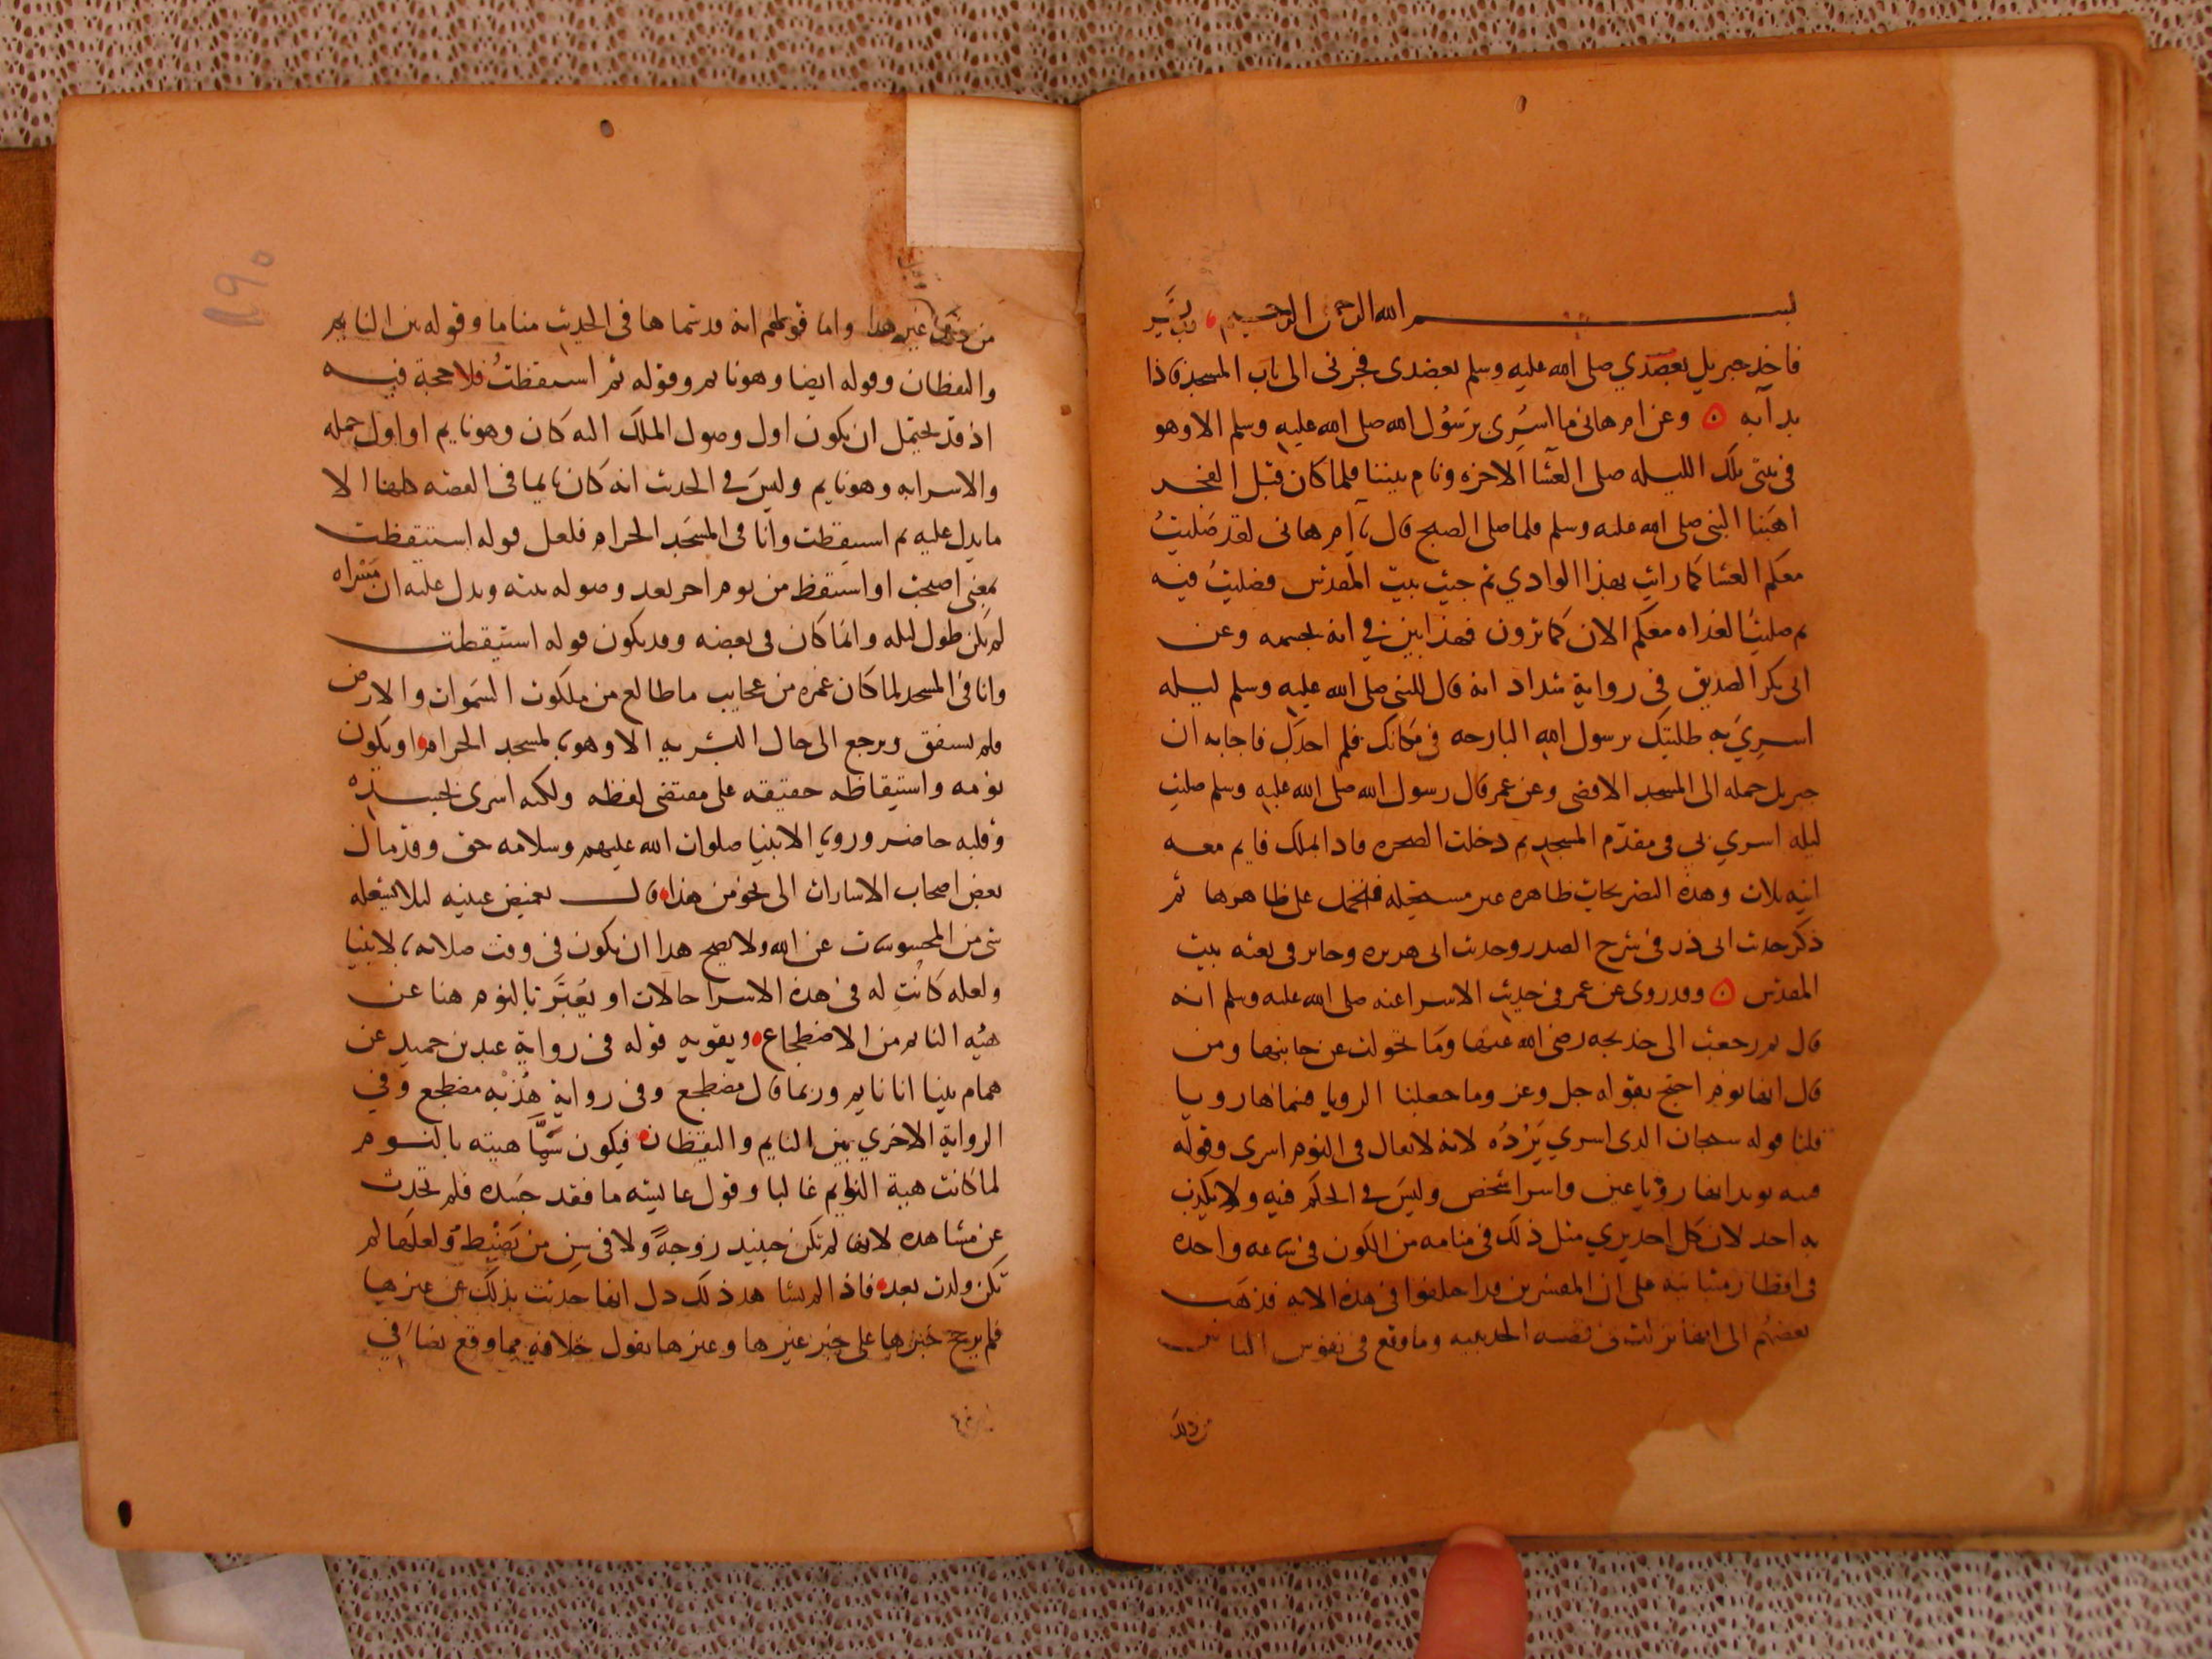 بسم الله الرحمن الرحيم رب يسر
فاخذ جبريل بعضدي صلى الله عليه وسلم بعضدى فجرنى الى باب المسجد فاذا
بدآبه وعن ام هانى ما اسرى برسول الله صلى الله عليه وسلم الا وهو
فى بيتى تلك الليله صلى العشا الاخره ونام بيننا فلما كان قبل الفجر
اهبنا النبى صلى الله عليه وسلم فلما صلى الصبح قال يا ام هانى لقد صليت
معكم العشا كما رايت بهذا الوادي ثم جيت بيت المقدس فصليت فيه
ثم صليت الغداه معكم الان كما ترون فهذا بين في انه بجسمه وعن
ابى بكر الصديق فى رواية شداد انه قال للنبى صلى الله عليه وسلم ليله
اسري به طلبتك يرسول الله البارحه فى مكانك فلم اجدك فاجابه ان
جبريل حمله الى المسجد الاقصى وعن عمر قال رسول الله صلى الله عليه وسلم صليت
ليله اسري بى فى مقدم المسجد ثم دخلت الصخره فاذا بملك قايم معه
انيه ثلاث وهذه التصريحات ظاهره غير مستحيله فتحمل على ظاهرها ثم
ذكر حديث ابى ذر فى شرح الصدر وحديث ابى هريره وجابر فى نعته بيت
المقدس وقد روى عن عمر فى حديث الاسرا عنه صلى الله عليه وسلم انه
قال ثم رجعت الى خديجه رضى الله عنها وما تحولت عن جانبها ومن
قال انها نوم احتج بقوله جل وعز وما جعلنا الرويا فسماها رويا
قلنا قوله سبحان الذى اسري يرده لانه لا يقال فى النوم اسرى وقوله
فتنه يويد انها رؤيا عين واسرا شخص وليس في الحلم فتنه ولا يكذب
به احد لان كل احد يري مثل ذلك فى منامه من الكون فى ساعه واحده
فى اقطار متباينه على ان المفسرين قد اختلفوا فى هذه الايه فذهب
بعضهم الى انها نزلت فى قصه الحديبيه وما وقع فى نفوس الناس
من ذلك
من ذلك غير هذا واما قولهم انه قد سماها فى الحديث مناما وقوله بين النايم
واليقظان وقوله ايضا وهو نايم وقوله ثم استيقظت فلا حجة فيه
اذ قد يحتمل ان يكون اول وصول الملك اليه كان وهو نايم او اول حمله
والاسرا به وهو نايم وليس في الحديث انه كان نايما فى القصه كلها الا
ما يدل عليه ثم استيقظت وانا فى المسجد الحرام فلعل قوله استيقظت
بمعنى اصبحت او استيقظ من نوم اخر بعد وصوله بيته ويدل عليه ان مسراه
لم يكن طول ليله وانما كان فى بعضه وقد يكون قوله استيقظت
وانا فى المسجد لما كان غمره من عجايب ما طالع من ملكوت السموات والارض
فلم يستفق ويرجع الى حال البشريه الا وهو بالمسجد الحرام او يكون
نومه واستيقاظه حقيقه على مقتضى لفظه ولكنه اسرى بجسده
وقلبه حاضر ورويا الانبيا صلوات الله عليهم وسلامه حق وقد مال
بعض اصحاب الاشارات الى نحو من هذا قال تغميض عينيه ليلا يشغله
شى من المحسوسات عن الله ولا يصح هذا ان يكون فى وقت صلاته بالانبيا
ولعله كانت له فى هذه الاسرا حالات او يعبر بالنوم هنا عن
هيه النايم من الاضطجاع ويقويه قوله فى رواية عبد بن حميد عن
همام بينا انا نايم وربما قال مضطجع وفى رواية هدبه مضطجع وفي
الرواية الاخري بين النايم واليقظان فيكون سما هيته بالنوم
لما كانت هية النايم غالبا وقول عايشه ما فقد جسده فلم تحدث
عن مشاهده لانها لم تكن حينيد زوجة ولا فى سن من يضبط ولعلها لم
تكن ولدت بعد فاذا لم تشاهد ذلك دل انها حدثت بذلك عن غيرها
فلم يرجح خبرها على خبر غيرها وغيرها يقول خلافه مما وقع نصا في